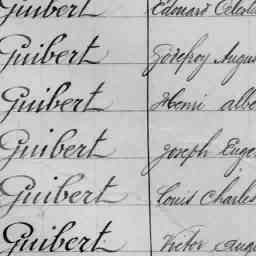 Guibert Edouard
Guibert Godefroy Augus
Guibert Henri albe
Guibert Joseph Euge
Guibert Louis Charles
Guibert Victor aug